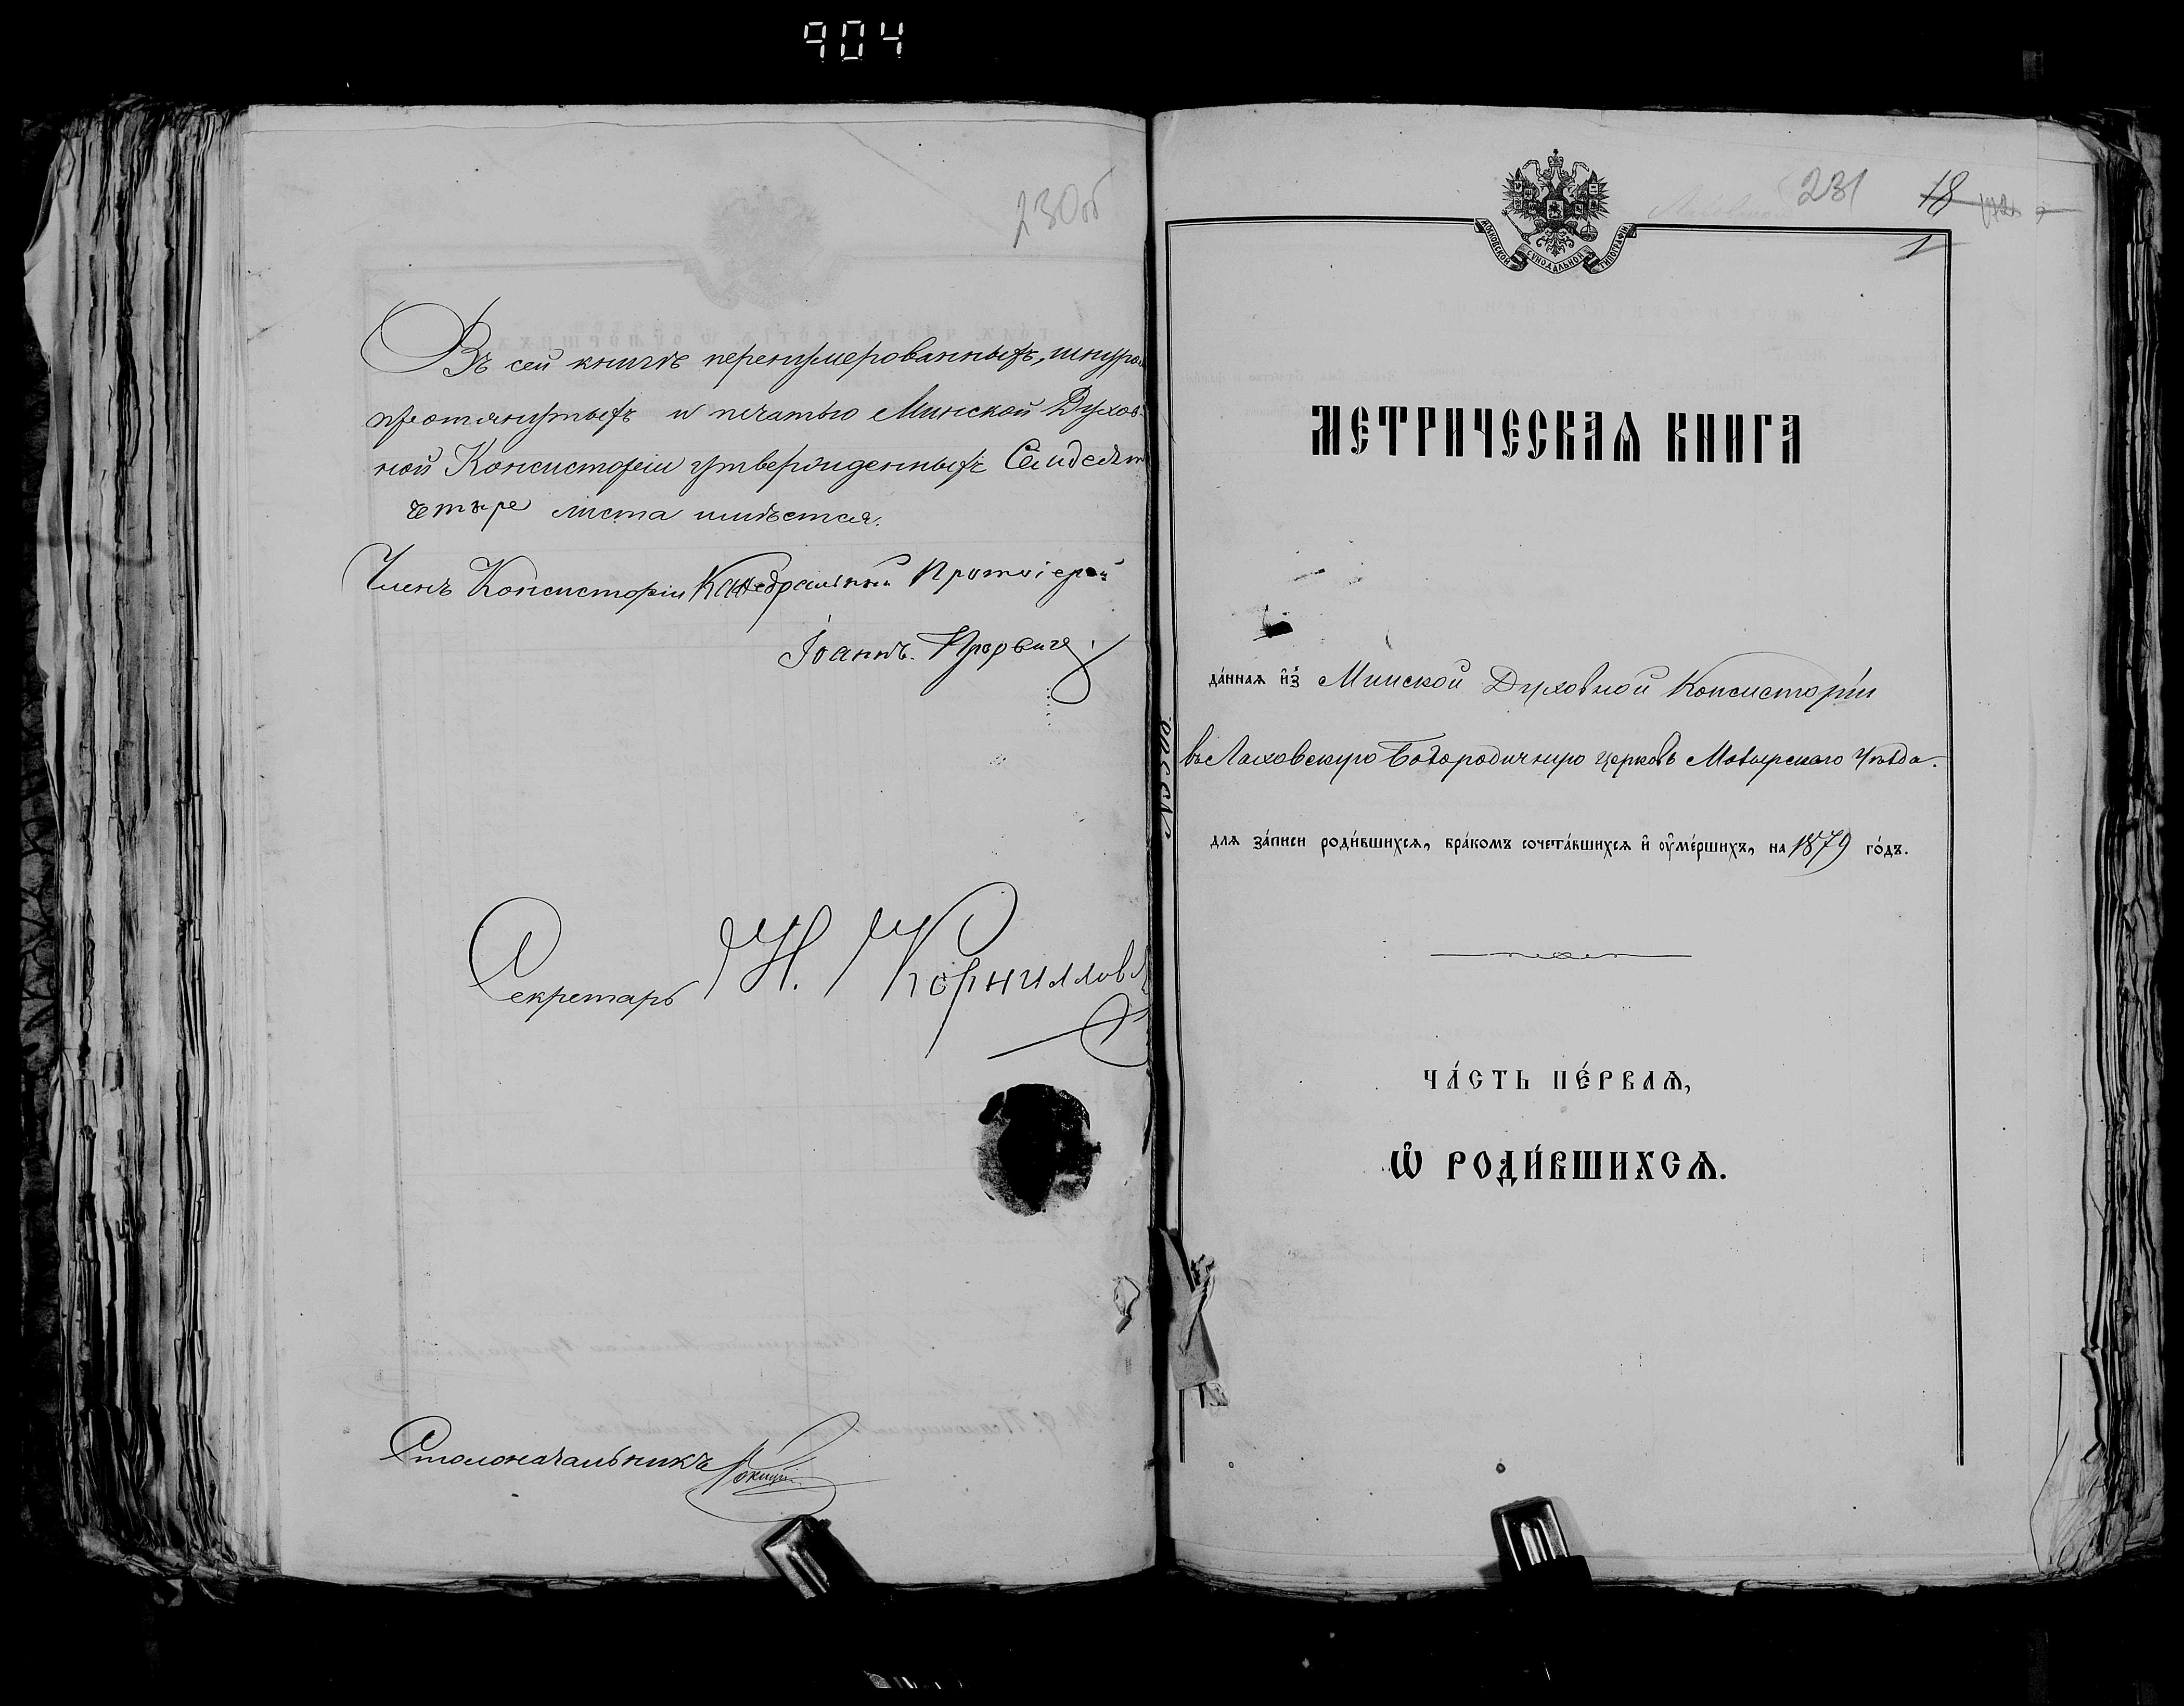 904
230об
Въ сей книгѣ перенумерованныхъ, шнуро
протянутыхъ и печатью Минской Духов-
ной Консисторіи утвержденныхъ Семдесят
четыре листа имѣется.
Членъ Консисторіи Каѳедральный Протоіерей
Іоаннъ
Секретарь Н. Корниловъ
Столоначальникъ
231 18
1
МОСКОВСКОЙ СУНОДАЛЬНОЙ ТИПОГРАФІИ
МЕТРИЧЕСКАѦ КНИГА
да́ннаѧ и҆з̾ Минской Духовной Консисторіи
въ Лаховскую Богородичную церковь Мозырскаго Уѣзда.
длѧ за́писи роди́вшихсѧ, бра́комъ сочета́вшихсѧ и҆ ᲂу҆ме́ршихъ, на 1879 го́дъ.
ЧА́СТЬ ПЕ́РВАѦ,
Ѽ РОДИ́ВШИХСѦ.